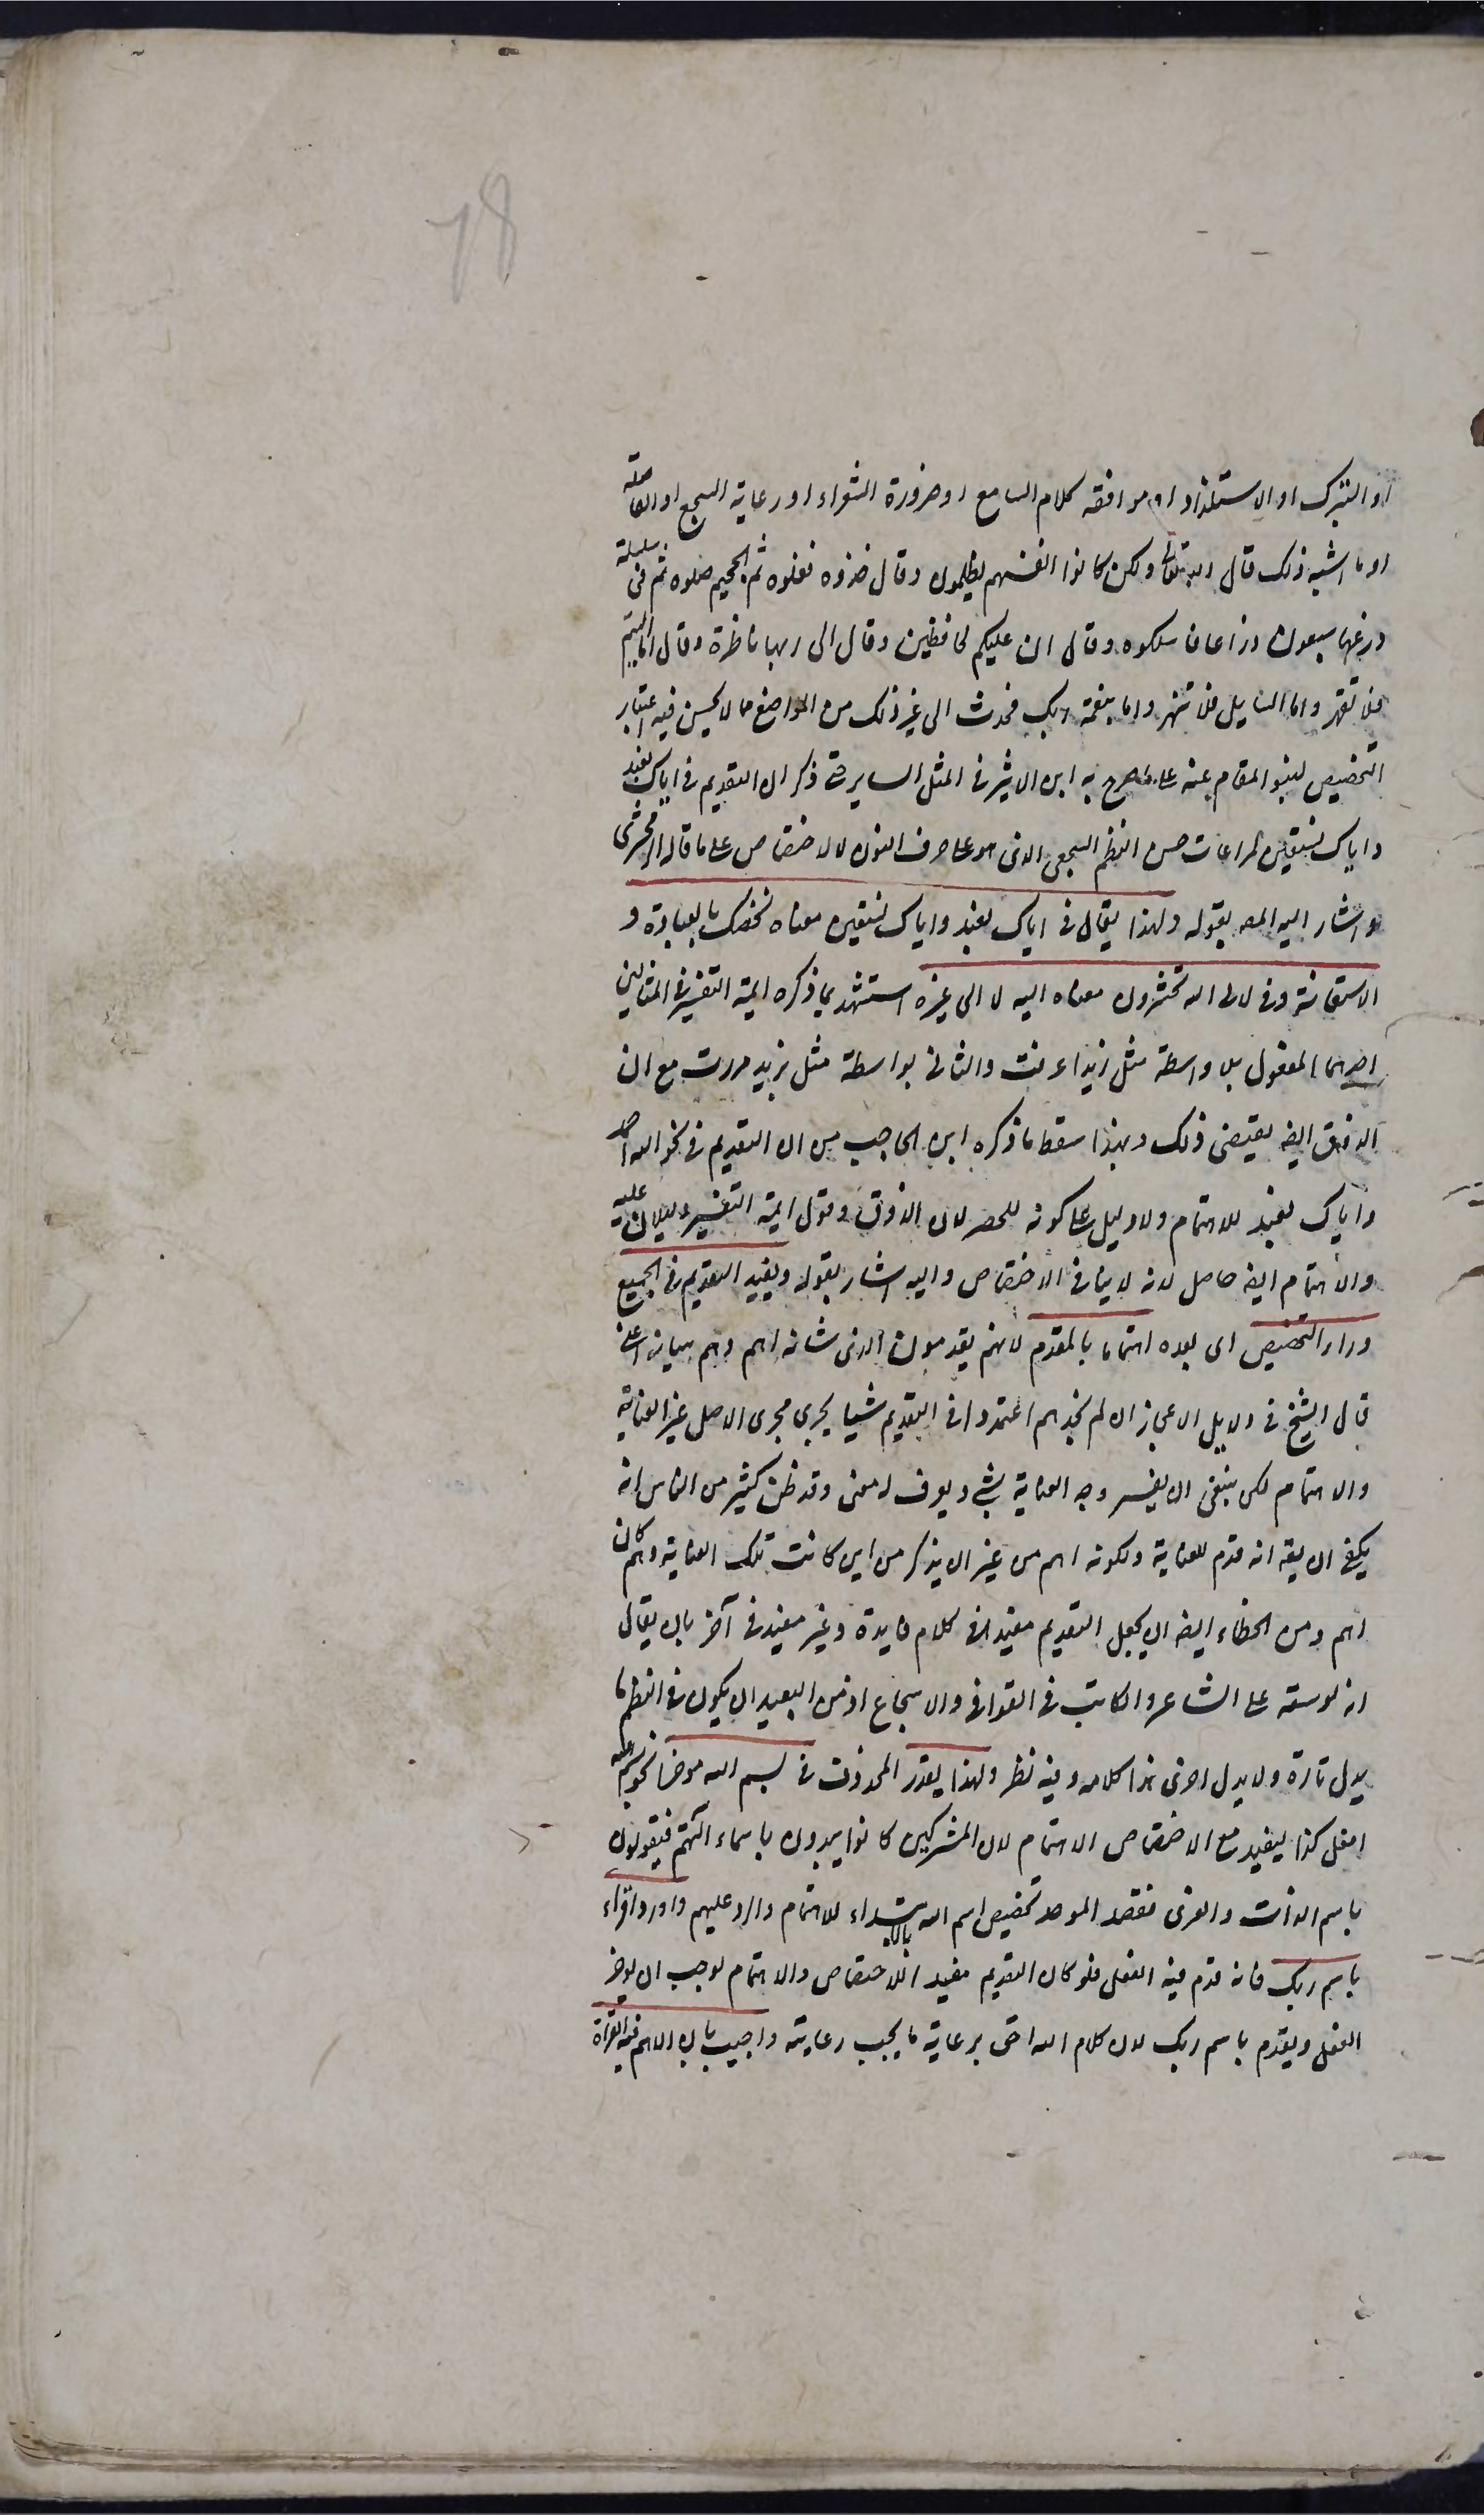 78
او التبرك او الاستلذاذ او موافقة كلام السامع او ضرورة الشعراء او رعاية السجع او الفاصلة
او ما اشبه ذلك قال الله تعالى ولكن كانوا انفسهم يظلمون وقال خذوه فغلوه ثم الجحيم صلوه ثم فى سلسلة
ذرعها سبعون ذراعا فاسلكوه وقال ان عليكم لحافظين وقال الى ربها ناظرة وقال فاما اليتيم
فلا تقهر واما السايل فلا تنهر واما بنعمة ربك فحدث الى غير ذلك من المواضع مما لا يحسن فيه اعتبار
التخصيص لنبو المقام عنه على ما صرح به ابن الاثير فى المثل الساير حتى ذكر ان التقديم فى اياك نعبد
واياك نستعين لمراعات حسن النظم السجعى الذى هو على حرف النون لا للاختصاص على ما قاله الزمخشرى
واشار اليه المص بقوله ولهذا يقال فى اياك نعبد واياك نستعين معناه نخصك بالعبادة و
الاستعانة وفى لالى الله تحشرون معناه اليه لا الى غيره استشهد بما ذكره ايمة التفسير فى المثالين
احدهما المفعول بلا واسطة مثل زيدا عرفت والثانى بواسطة مثل بزيد مررت مع ان
الذوق ايضا يقتضى ذلك وبهذا سقط ما ذكره ابن الحاجب من ان التقديم فى نحو الله احمد
واياك نعبد للاهتمام ولا دليل على كونه للحصر لان الذوق وقول ايمة التفسير دليلان عليه
والاهتمام ايضا حاصل لانه لا ينافى الاختصاص واليه اشار بقوله ويفيد التقديم فى الجميع
وراء التخصيص اى بعده اهتماما بالمقدم لانهم يقدمون الذى شانه اهم وهم ببيانه اعنى
قال الشيخ فى دلايل الاعجاز ان لم نجدهم اعتمدوا فى التقديم شيا يجرى مجرى الاصل غير العناية
والاهتمام لكن ينبغى ان يفسر وجه العناية بشى ويعرف له معنى وقد ظن كثير من الناس انه
يكفى ان يقه انه قدم للعناية ولكونه اهم من غير ان يذكر من اين كانت تلك العناية وبم كان
اهم ومن الخطاء ايضا ان يجعل التقديم مفيدا فى كلام فايدة وغير مفيد فى آخر بان يقال
انه توسعة على الشاعر والكاتب فى القوافى والاسجاع اذ من البعيد ان يكون فى النظم ما
يدل تارة ولا يدل اخرى هذا كلامه وفيه نظر ولهذا يقدر المحذوف فى بسم الله موخرا نحو بسم الله
افعل كذا ليفيد مع الاختصاص الاهتمام لان المشركين كانوا يبدون باسماء آلهتهم فيقولون
باسم اللات والعزى فقصد الموحد تخصيص اسم الله بالابتداء للاهتمام والرد عليهم واورد اقراء
باسم ربك فانه قدم فيه الفعل فلو كان التقديم مفيدا للاختصاص والاهتمام لوجب ان يوخر
الفعل ويقدم باسم ربك لان كلام الله احق برعاية ما يجب رعايته واجيب بان الاهم فيه القراة